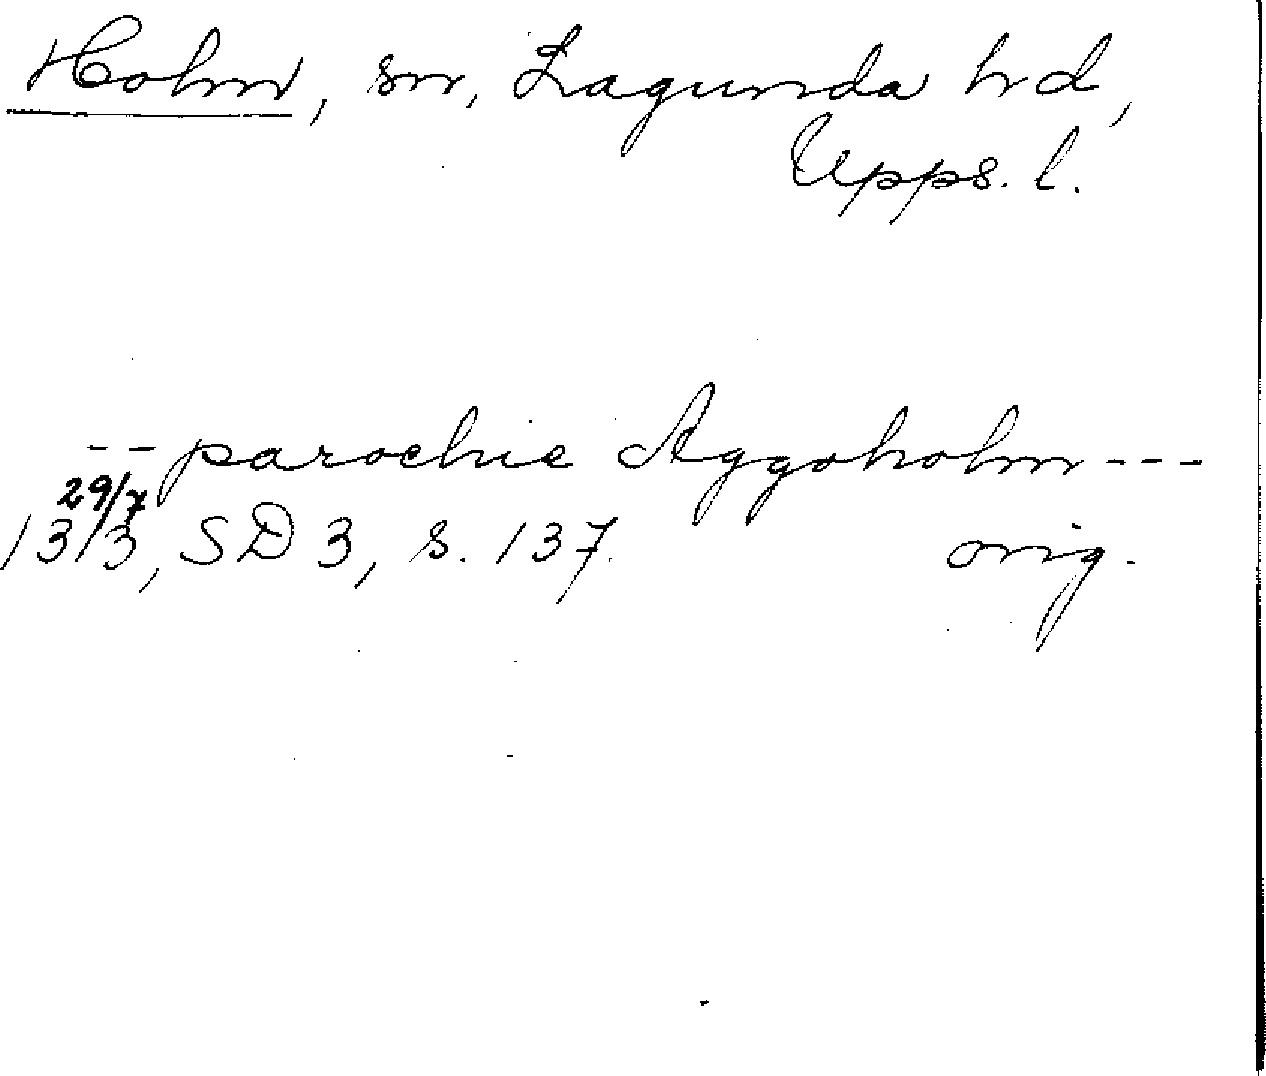 Holm, sn, Lagunda hd,
Upps. l.
-- parochie Aggoholm ---
29/7
1313, SD 3, s. 137. orig.